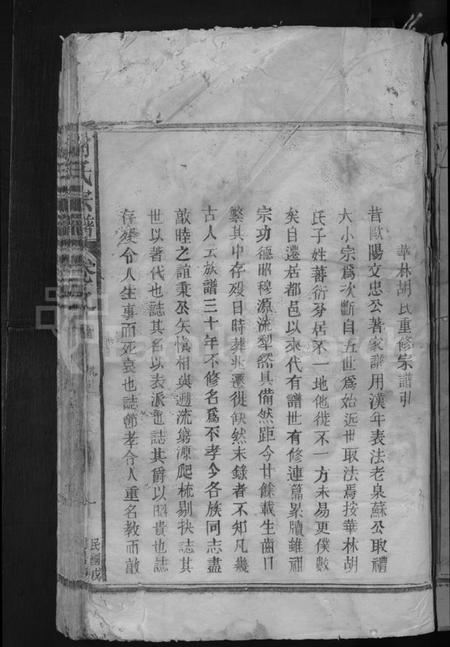 華林胡氏重修宗譜引
昔歐陽文忠公著家譜用漢年表法老泉蘇公取禮
大小宗為次斷自五世為始近世取法焉按華林胡
氏子姓蕃衍芬居不一地他徙不一方未易更僕數
矣自遷居都邑以來代有譜世有修連篇累牘雖祖
宗功德昭穆源流犁然具備然距今廿餘載生齒日
繁其中存歿日時葬地遷徙缺然未錄者不知凡幾
古人云族譜三十年不修名為不孝今各族同志盡
敬睦之誼秉公矢慎相與遡流窮源爬梳剔抉誌其
世以著代也誌其名以表派也誌其爵以昭貴也誌
存歿令人生事而死哀也誌節孝令人重名教而敵
胡氏宗譜
卷首
一
民國戊